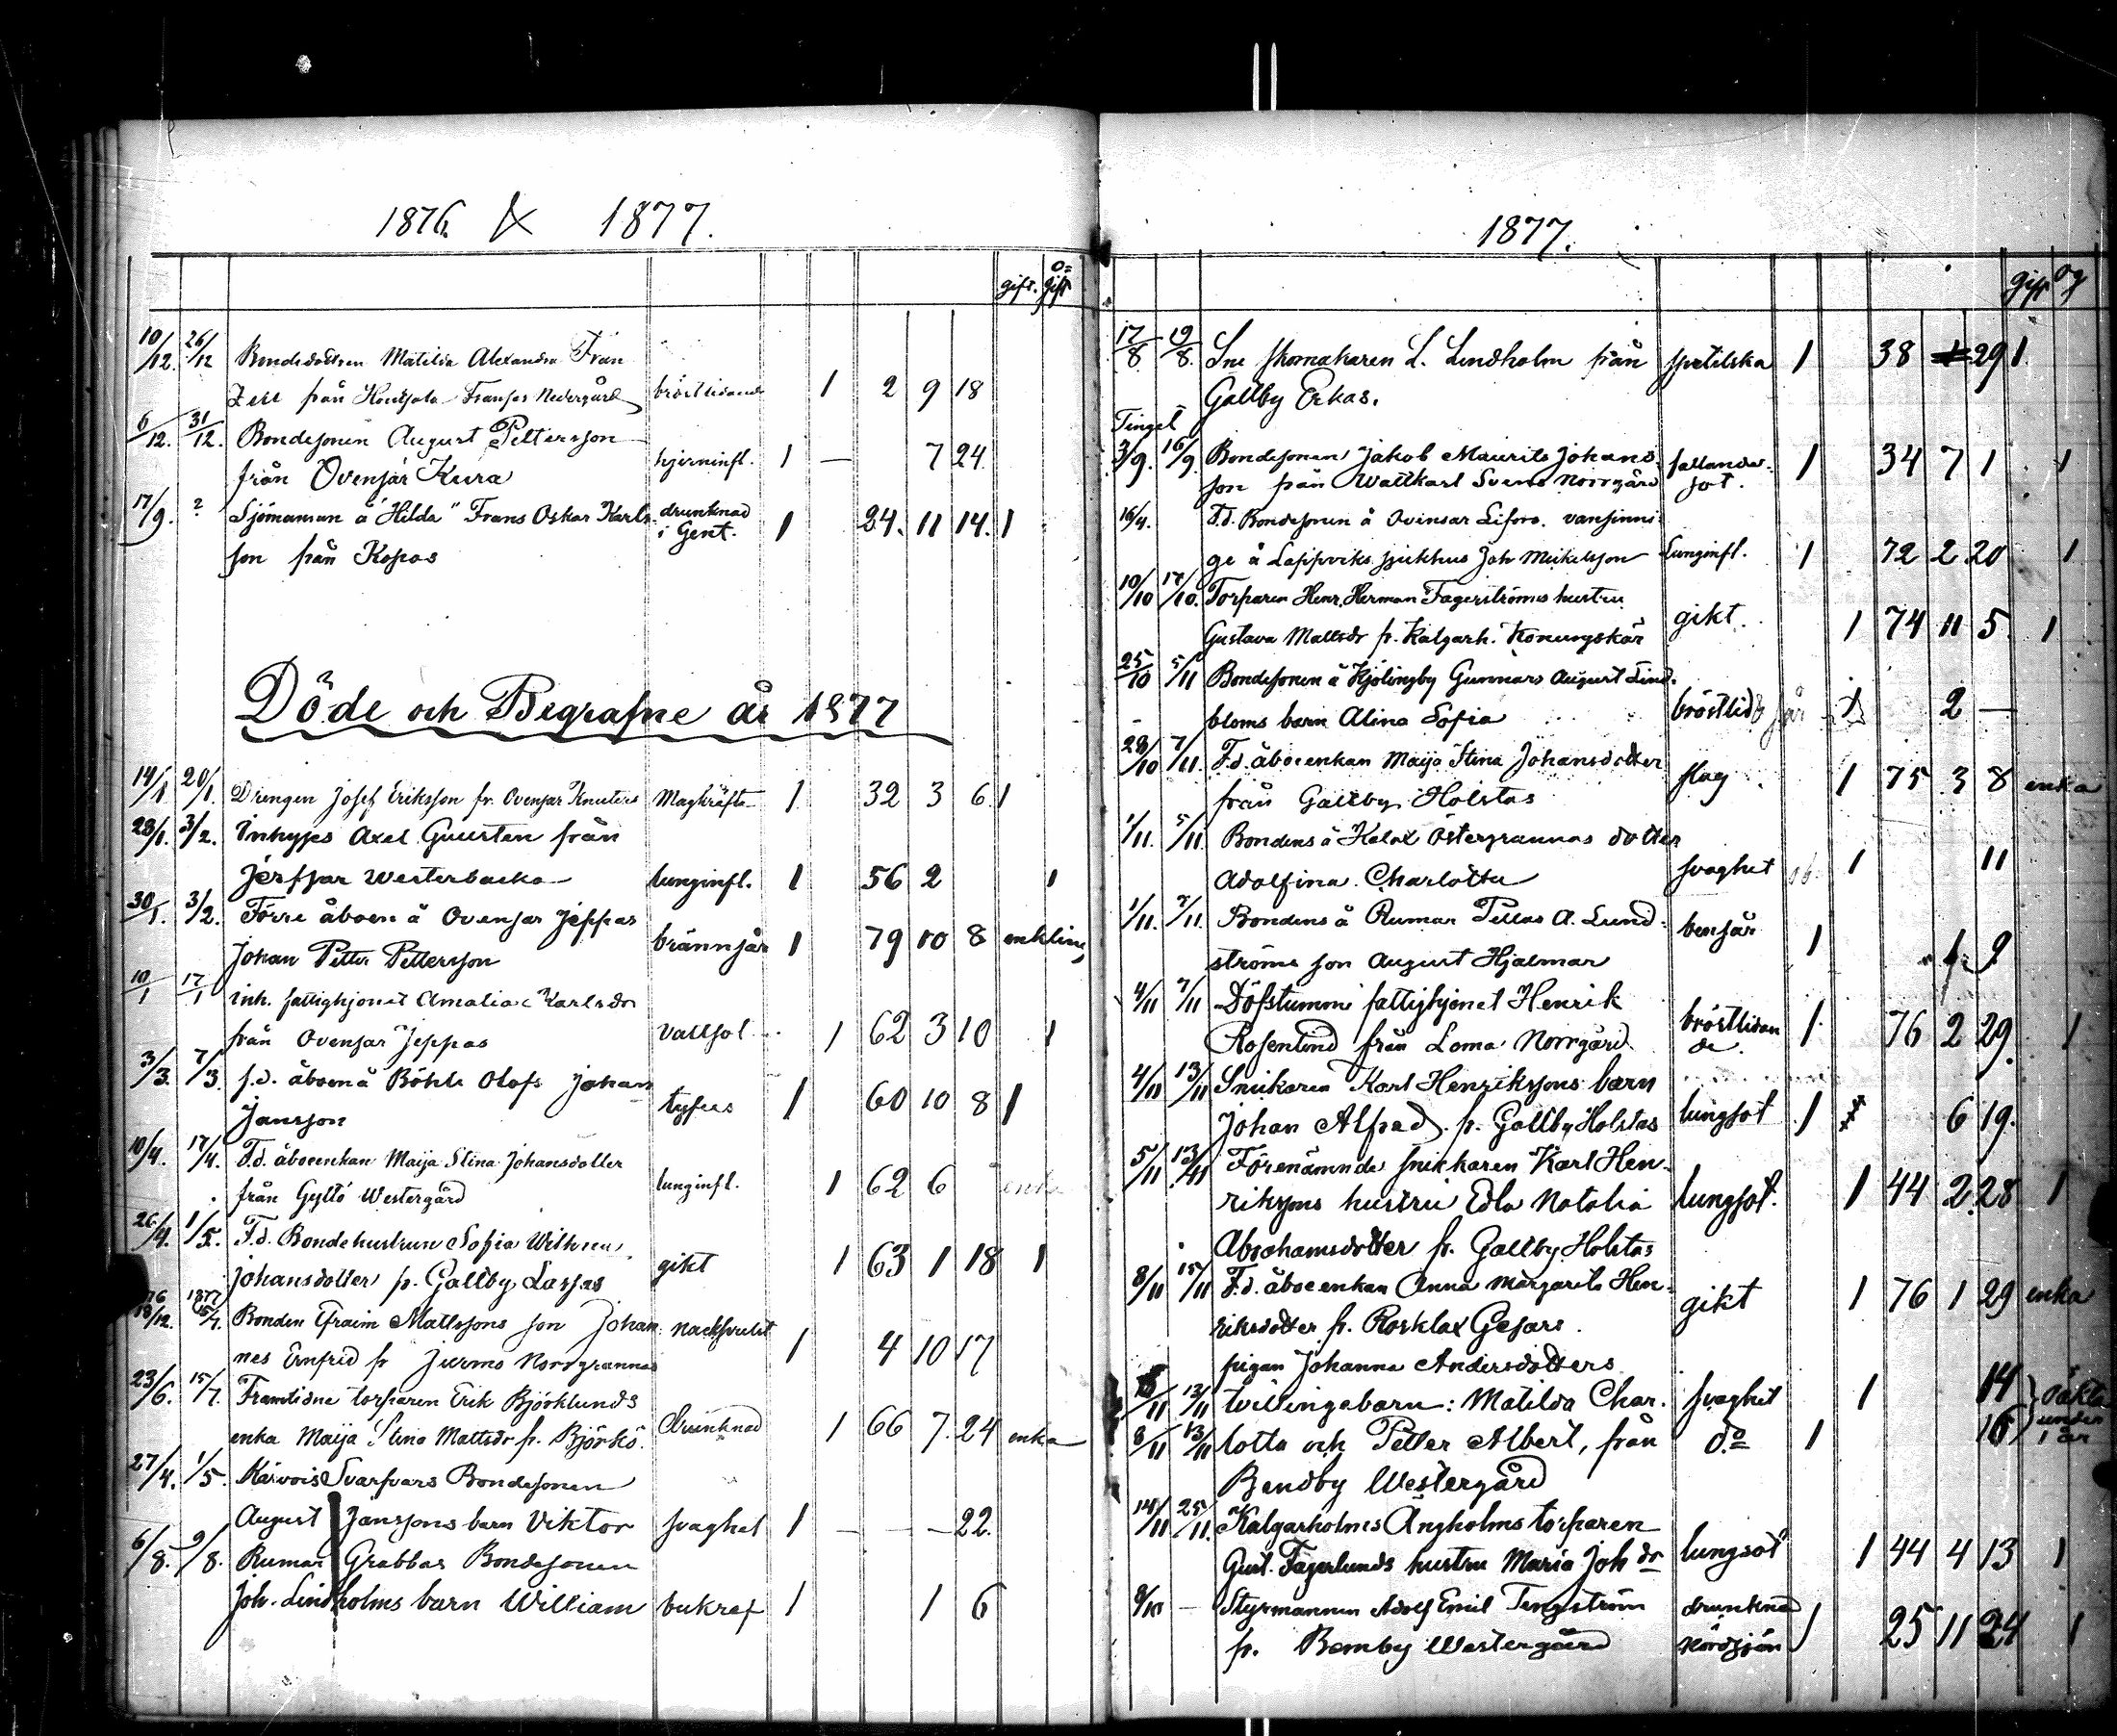 1876. & 1877.
gift. o=gift
10/12. 26/12 Bondedottren Matilda Alexandra Frans
från Houtsala Fransas Nedergård bröstlidande 1 2 9 18
6/12. 31/12. Bondesonen August Pettersson
från Ovensår Kura hjerninfl. 1 — 7 24.
17/9. ? Sjömannen å "Hilda" Frans Oskar Karls- drunknad
son från Kopas i Gent. 1 24. 11 14. 1
Döde och Begrafne år 1877
14/1 20/1. Drengen Josef Eriksson fr. Ovensar Knuters Magkräfta 1 32 3 6. 1
28/1. 3/2. Inhyses Axel Guusten från
Jersjar Westerbacka lunginfl. 1 56 2 1
30/1. 3/2. Förre åboen å Ovensar Jeppas
Johan Petter Pettersson brännsår 1 79 10 8 enkling
10/1 17/1 inh. fattighjonet Amalia Karlsdr
från Ovensar Jeppas Vattsot 1 62 3 10 1
3/3. 7/3. f.d. åboen å Böhle Olofs Johan
Jansson tyfus 1 60 10 8 1
10/4. 17/4. F.d. åboenkan Maija Stina Johansdotter
från Gyltö Westergård lunginfl. 1 62 6 enka
26/4. 1/5. F.d. Bondehustrun Sofia Wilhelmina
Johansdotter fr. Gallby Lassas gikt 1 63 1 18 1
76 1877
18/12. 15/7. Bonden Efraim Mattssons son Johan- nacksvulst
nes Ernfrid fr Jurmo Norrgrannas 1 4 10 17
23/6. 15/7. Framlidne torparen Erik Björklunds
enka Maija Stina Mattsdr fr. Björkö. Drunknad 1 66 7. 24 enka
27/4. 1/5. Kärvois Svarfvars Bondesonen
August Janssons barn Viktor svaghet 1 — — — 22.
6/8. 9/8. Rumar Grabbas Bondesonen
Joh. Lindholms barn William bukref 1 1 6
1877.
gift og
17/8. 19/8. Sne skomakaren L. Lindholm från spetelska 1 38 29 1
Gallby Erkas.
Tingel
3/9. 16/9. Bondesonen Jakob Maurits Johans- fallande-
son från Wattkast Svens Norrgård sot. 1 34 7 1 1
16/4. F.d. Bondesonen å Ovensar Sifors. vansinni-
ge å Lappviks sjukhus Joh Mickelsson Lunginfl. 1 72 2 20 1
10/10 17/10. Torparen Henr. Herman Fagerströms hustru
Gustava Mattsdr fr. Kalgarh. Konungskär gikt. 1 74 11 5. 1
25/10 5/11 Bondesonen å Kjölingby Gunnars August Lind-
bloms barn Alina Sofia bröstlid 1 2 —
28/10 7/11. F.d. åboenkan Maija Stina Johansdotter
från Gallby Holstas slag 1 75 3 8 enka
1/11. 5/11 Bondens å Kalax Östergrannas dotter
Adolfina Charlotta svaghet 1 11
1/11. 7/11. Bondens å Rumar Pellas A. Lund-
ströms son August Hjalmar bensår 1 9
4/11 7/11 Döfstumme fattighjonet Henrik
Rosenlind från Loma Norrgård. bröstlidan
de. 1 76 2 29. 1
4/11 13/11 Snikaren Karl Henrikssons barn
Johan Alfred. fr. Gallby Holstas lungsot 1 6 19.
5/11 13/11 Förenämnde snikkaren Karl Hen-
rikssons hustru Edla Natalia lungsot. 1 44 2 28 1
Abrahamsdotter fr. Gallby Holstas
8/11 15/11 F.d. åboeenkan Anna Margareta Hen-
riksdotter fr. Rosklax Gesars. gikt 1 76 1 29 enka
pigan Johanna Andersdotters
13/11 tvillingabarn: Matilda Char- svaghet 1 14 } oäkta
8/11 13/11 lotta och Petter Albert, från do 1 16 under 1 år
Bendby Westergård
14/11 25/11. Kalgarholms Ängholms torparen
Gust. Fagerlunds hustru Maria Joh dr lungsot 1 44 4 13 1
Styrmannen Adolf Emil Tengström drunknad
fr. Bemby Westergård Nordsjön 1 25 11 24 1